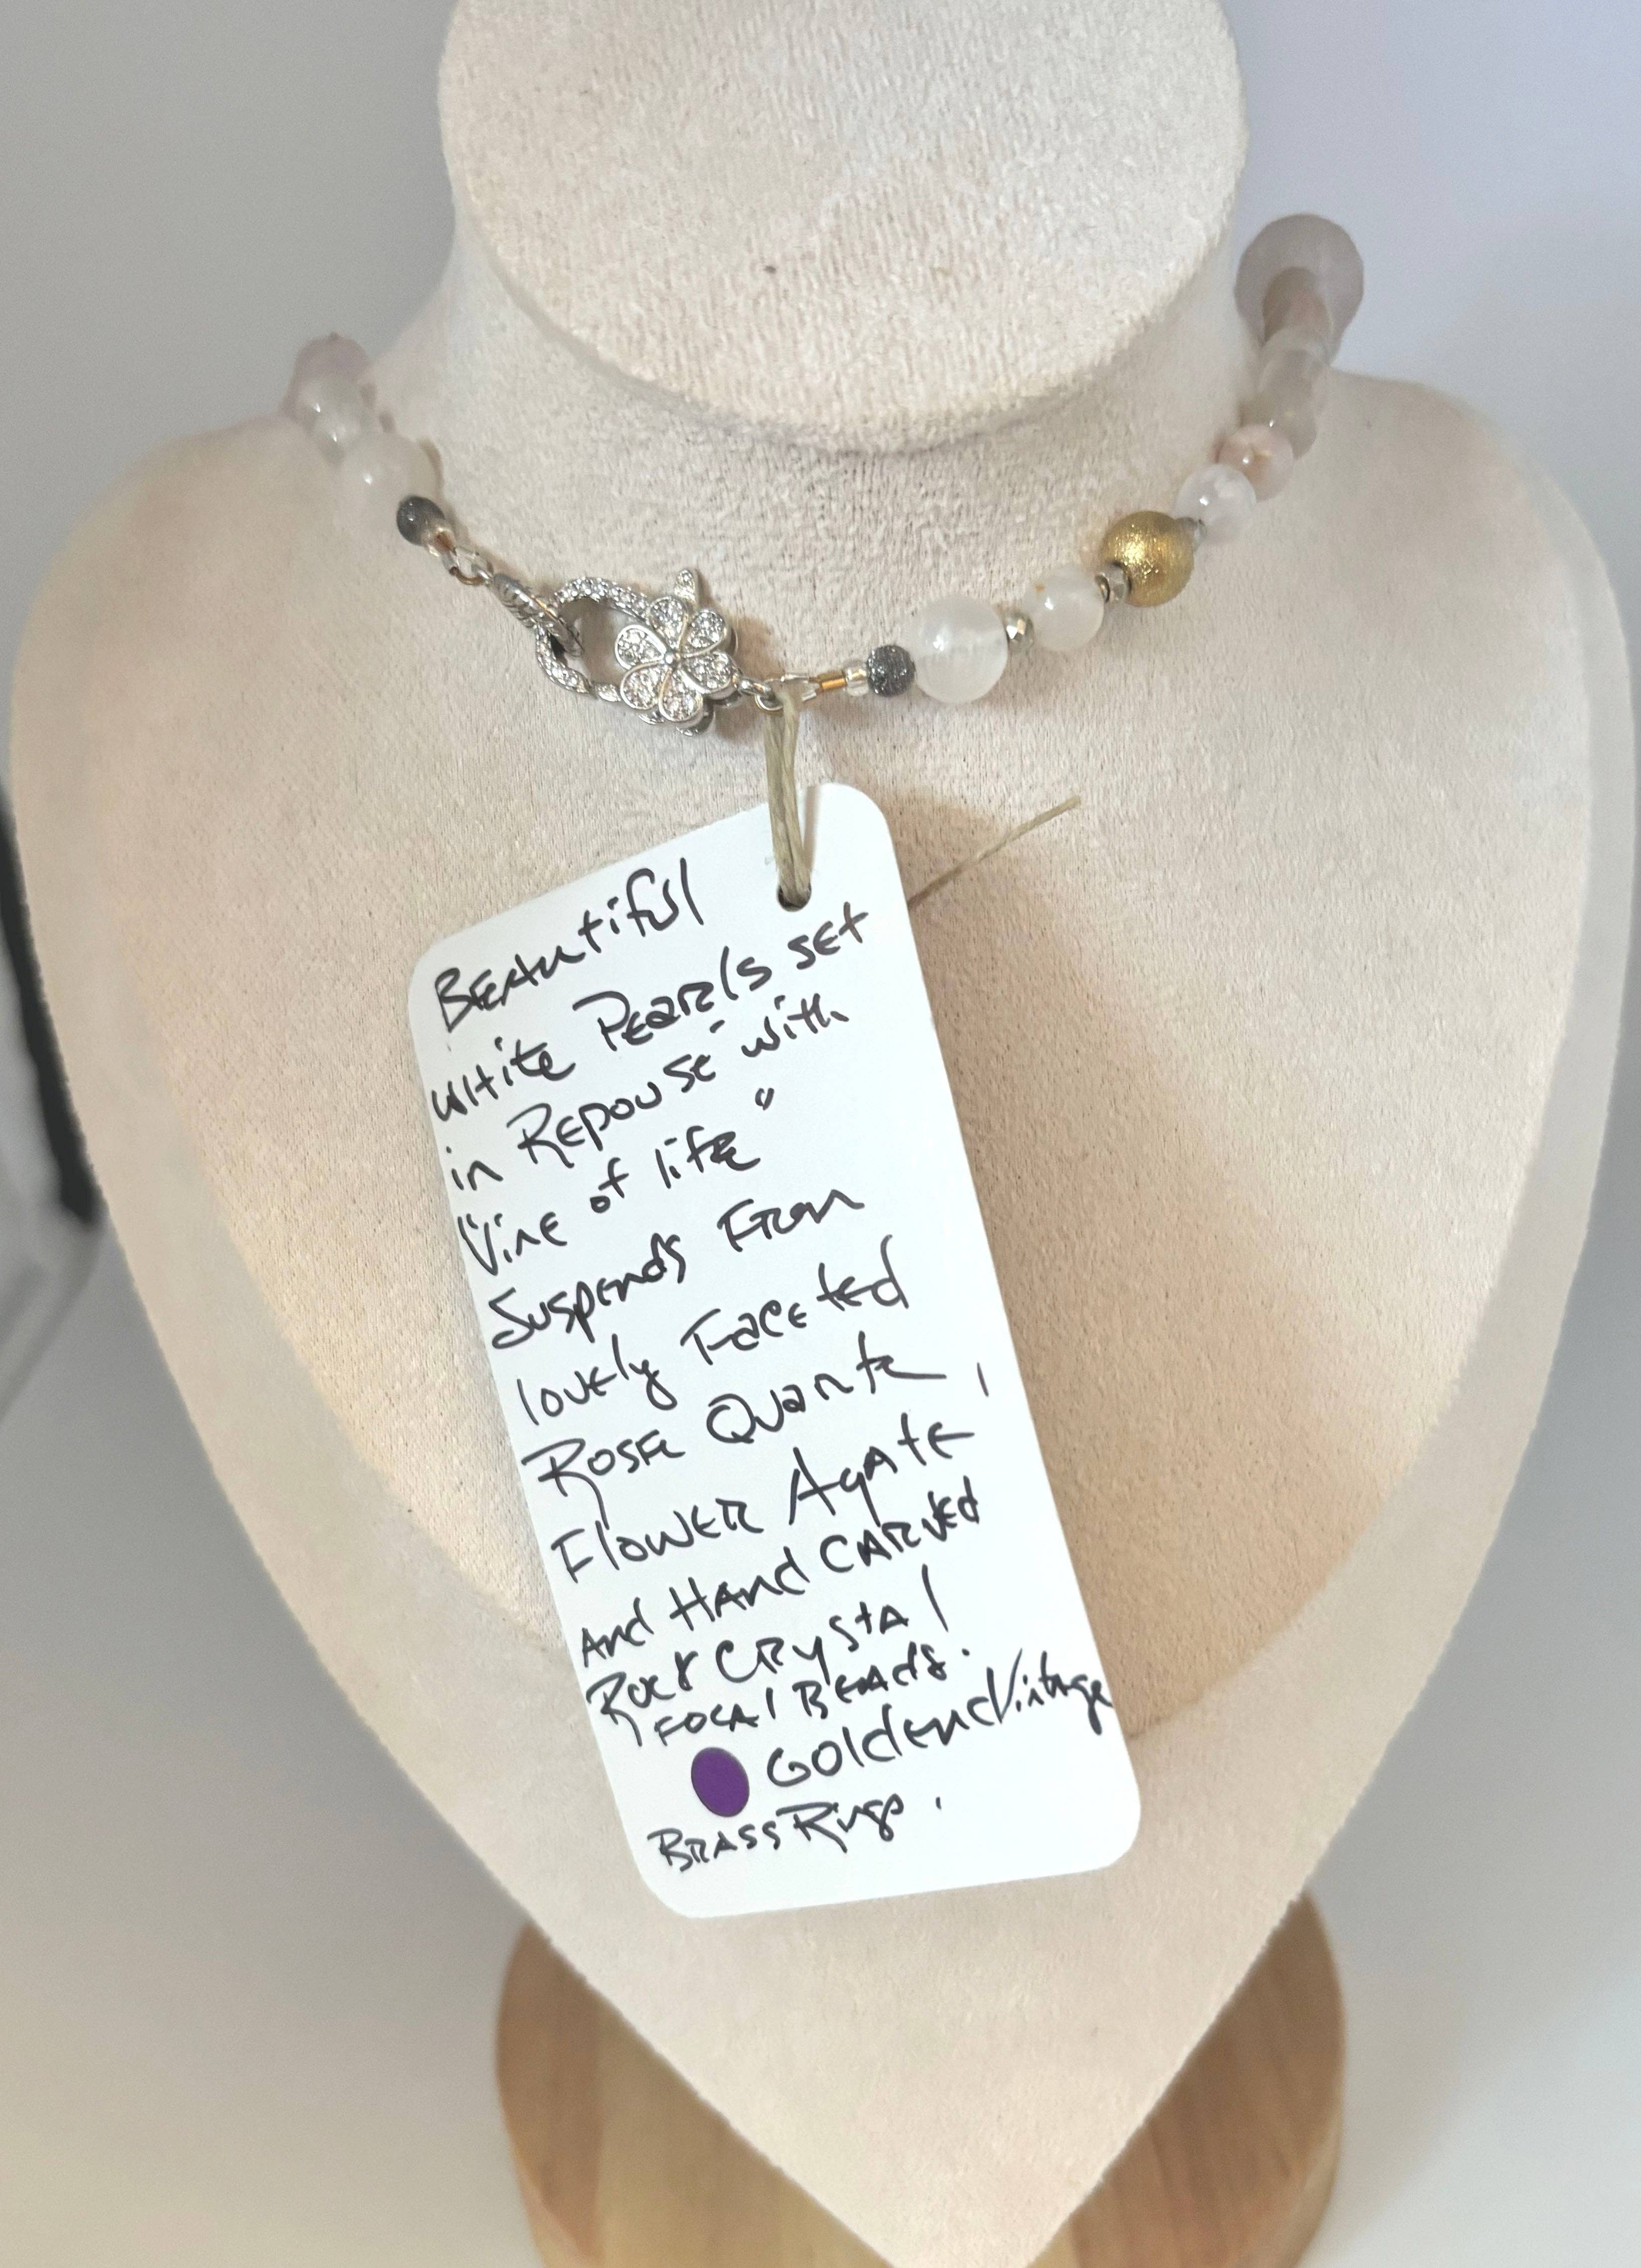 Beautiful
white Pearls set
in Repousé with
"Vine of life"
Suspends From
lovely Faceted
Rose Quartz,
Flower Agate,
And Hand CARVed
Rock Crystal
Focal Beads.
Golden Vintage
Brass Rings.